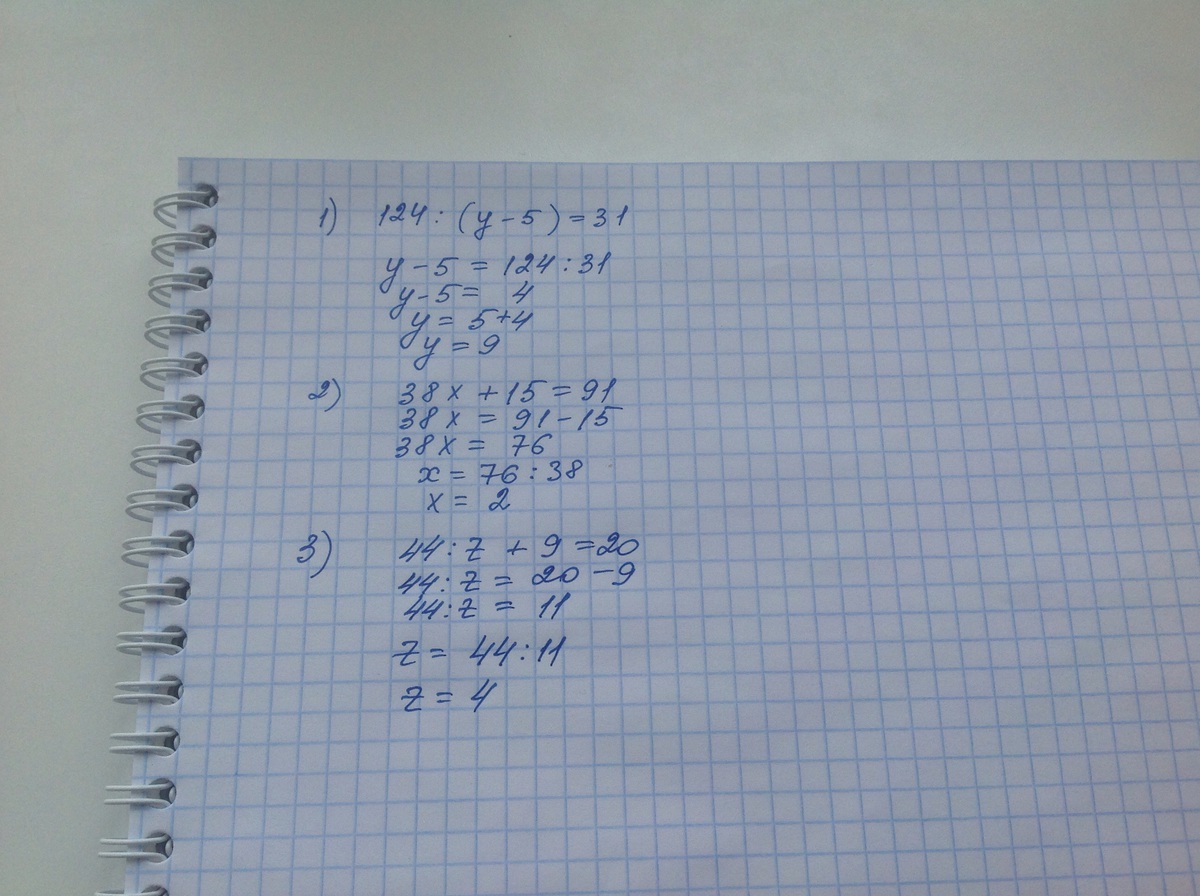 1) 124 : (y - 5) = 31
y - 5 = 124 : 31
y - 5 = 4
y = 5 + 4
y = 9
2) 38x + 15 = 91
38x = 91 - 15
38x = 76
x = 76 : 38
x = 2
3) 44 : z + 9 = 20
44 : z = 20 - 9
44 : z = 11
z = 44 : 11
z = 4